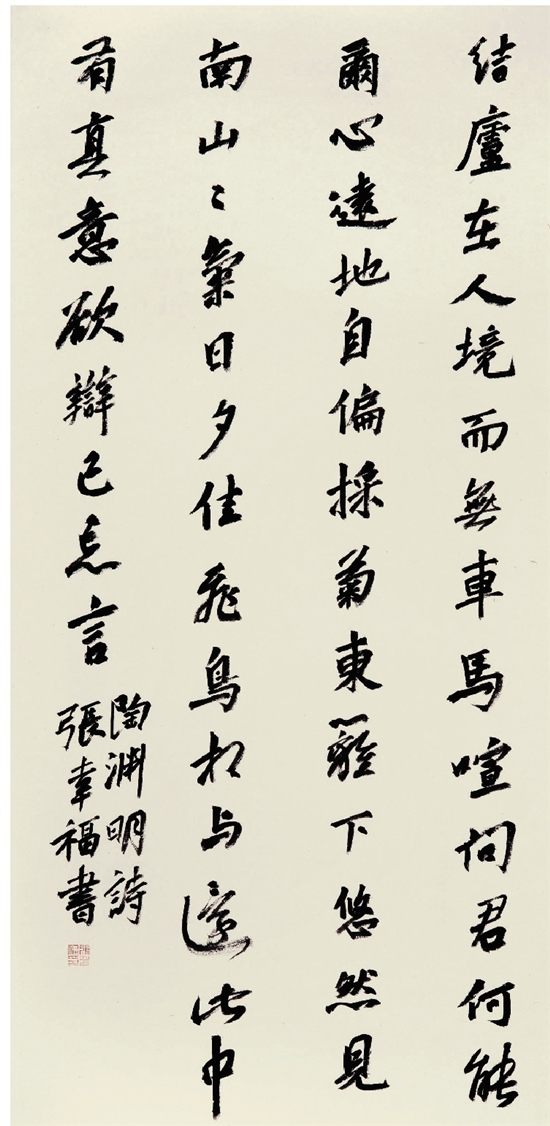 結廬在人境而無車馬喧問君何能
爾心遠地自偏採菊東籬下悠然見
南山山氣日夕佳飛鳥相与還此中
有真意欲辯已忘言
陶淵明詩
張幸福書